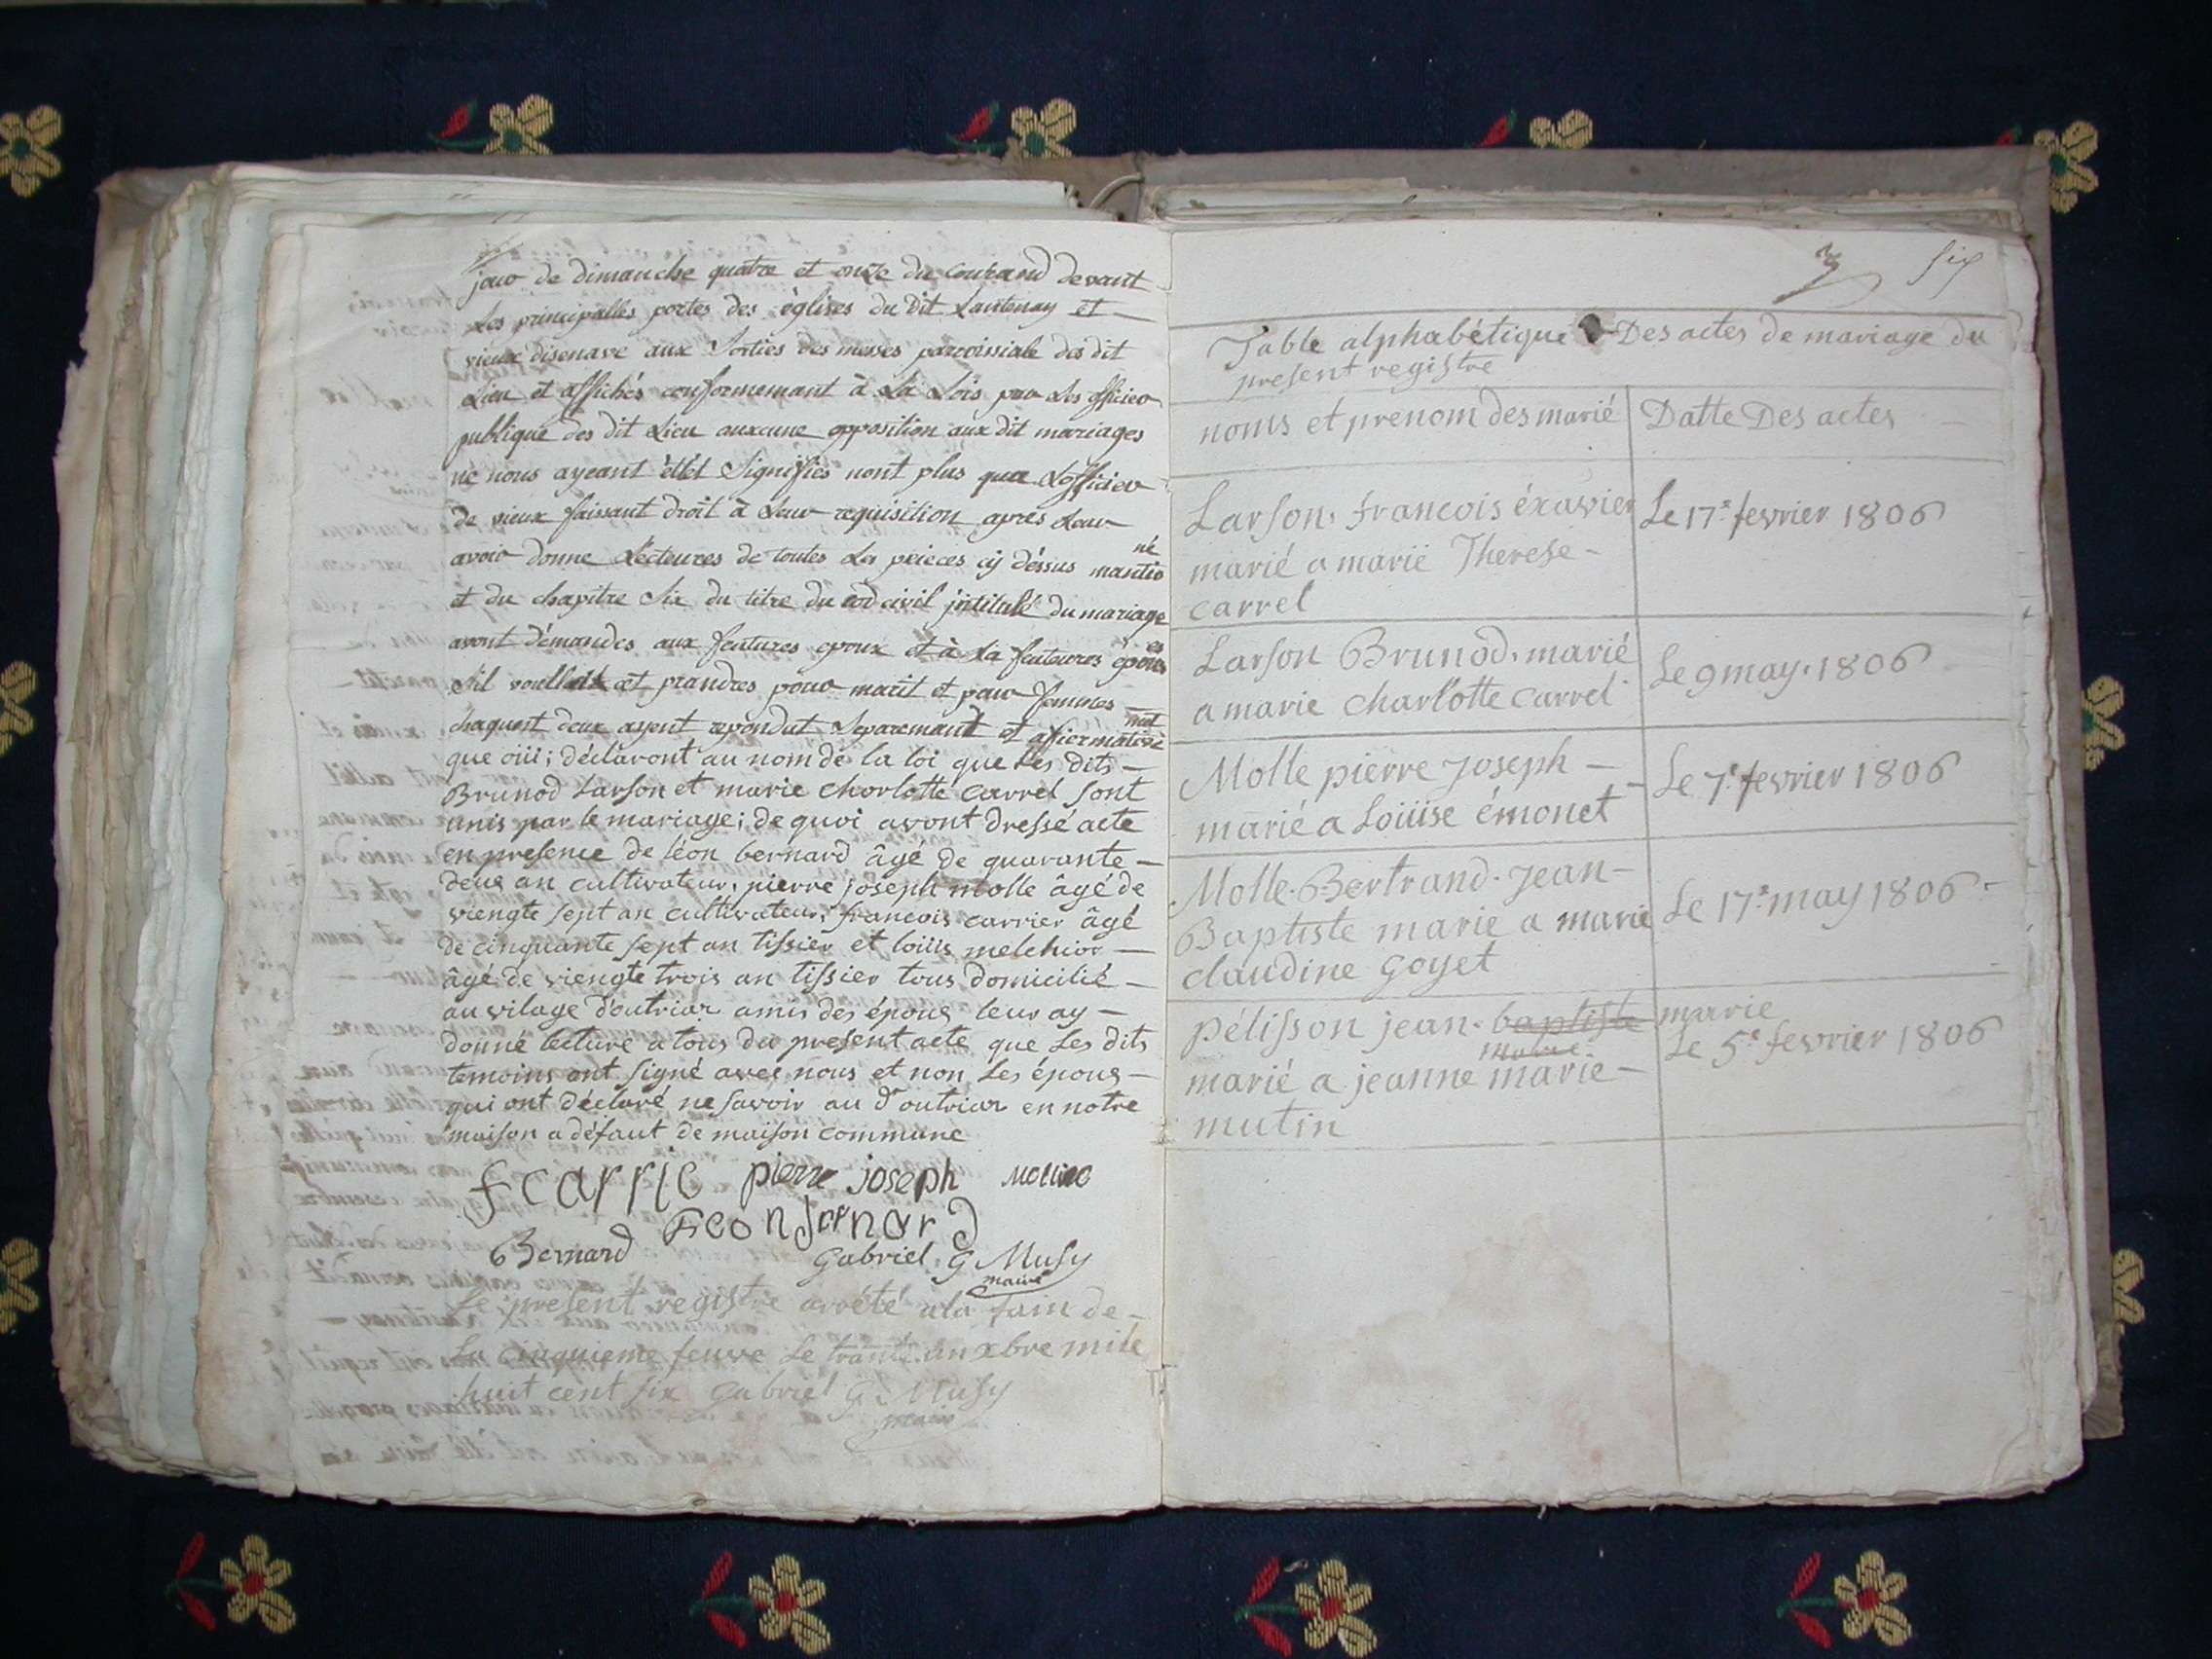 jour de dimanche quatre et onze du courand devant
Les principalles portes des églises du dit Lantenay et —
vieux disenave aux Sorties des messes parroissiale des dit
Lieu et affichés conformemant à La Lois par Les officier
publique des dit Lieu auxcune opposition aux dit mariages
ne nous ayeant étté Signifiés nont plus qua Lofficier
de vieux faissant droit à Leur requisition apres Leur
avoir donne Lecteures de toutes La peieces cy déssus mantio né
et du chapitre Six du titre du cod civil jntitulé du mariage
avont démandes aux feutures epoux et à La feuteures épouses
Sil voullent et prandres pour marit et pour femmes —
chaquent deux ayent repondut Séparemant et affiermative met
que oüi; déclaront au nom de la loi que Les dits —
Brunod Larson et marie charlotte carrel sont
unis par le mariage; de quoi avont dressé acte
en presence de léon bernard âgé de quarante —
deux an cultivateur, pierre joseph molle âgé de
viengte sept an cultivateur, francois carrier âgé
de cinquante sept an tissier et loüis melchior —
âgé de viengte trois an tissier tous domicilié —
au vilage d'outriar amis des époux leur ay —
donné lecture a tous du present acte que Les dits
temoins ont signé avec nous et non Les époux —
qui ont déclaré ne savoir au d'outriar en notre
maison a défaut de maison commune
f carrie pierre joseph
Bernard
gabriel G Musy
maire
Le present registre arrété a la fain de —
La cinquieme feuve Le trante un xbre mile
huit cent six gabriel G Musy
maire
six
Table alphabétique Des actes de mariage du
present registre
noms et prenom des marié Datte Des actes
Larson. francois éxavier Le 17e fevrier 1806
marié a marie Therese —
carrel
Larson Brunod. marié Le 9 may. 1806
a marie charlotte carrel
Molle pierre joseph — Le 7e fevrier 1806
marié a Loüise émonet
Molle. Bertrand. jean —
Baptiste marie a marie Le 17e may 1806
claudine goyet
pélisson jean. baptiste marie
marie Le 5e fevrier 1806
marié a jeanne marie —
mutin